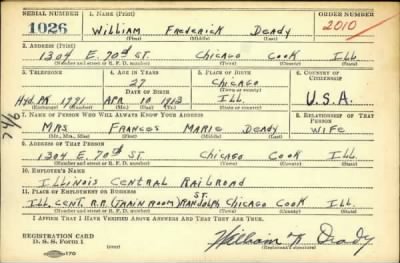 SERIAL NUMBER 1. NAME (Print) ORDER NUMBER
1026 William Frederick Deady 2010
(First) (Middle) (Last)
2. ADDRESS (Print)
1304 E. 70th ST. Chicago Cook Ill
(Number and street or R. F. D. number) (Town) (County) (State)
3. TELEPHONE 4. AGE IN YEARS 5. PLACE OF BIRTH 6. COUNTRY OF CITIZENSHIP
27 Chicago
(Town or county)
DATE OF BIRTH
Hyd. PK 1771 Apr 10 1913 Ill. U.S.A.
(Exchange) (Number) (Mo.) (Day) (Yr.) (State or country)
7. NAME OF PERSON WHO WILL ALWAYS KNOW YOUR ADDRESS 8. RELATIONSHIP OF THAT PERSON
Mrs Frances Marie Deady Wife
(Mr., Mrs., Miss) (First) (Middle) (Last)
9. ADDRESS OF THAT PERSON
1304 E. 70th ST. Chicago Cook Ill
(Number and street or R. F. D. number) (Town) (County) (State)
10. EMPLOYER'S NAME
Illinois Central Railroad
11. PLACE OF EMPLOYMENT OR BUSINESS
Ill. Cent. R.R. (Train Room) Randolph ST. Chicago Cook Ill.
(Number and street or R. F. D. number) (Town) (County) (State)
I AFFIRM THAT I HAVE VERIFIED ABOVE ANSWERS AND THAT THEY ARE TRUE.
REGISTRATION CARD
D. S. S. Form 1 William F. Deady
(Registrant's signature)